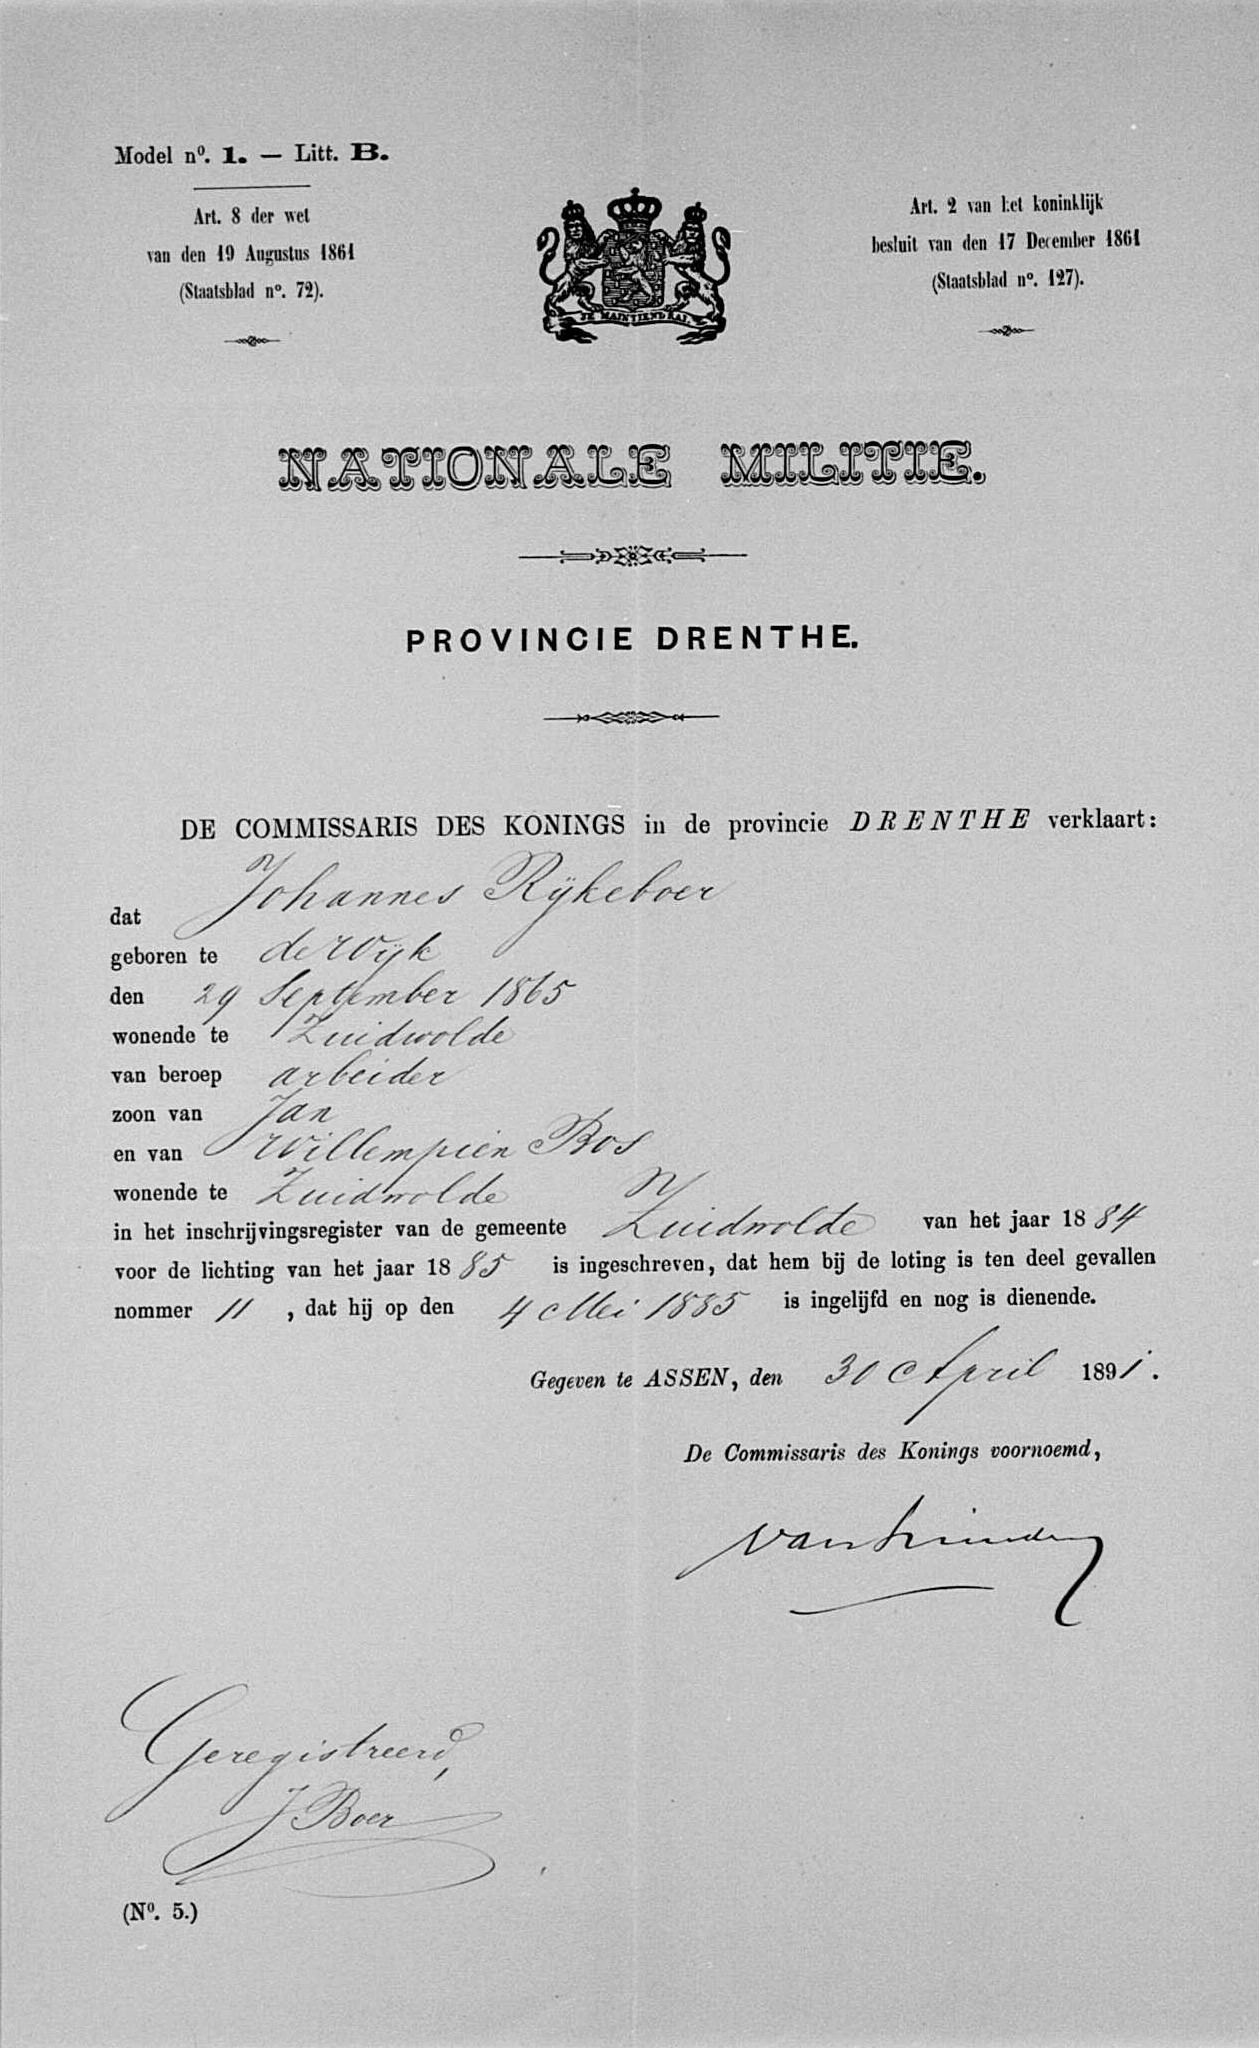 Model nº. 1. — Litt. B.
Art. 8 der wet
van den 19 Augustus 1861
(Staatsblad nº. 72).
JE MAINTIENDRAI.
Art. 2 van het koninklijk
besluit van den 17 December 1861
(Staatsblad nº. 127).
NATIONALE MILITIE.
PROVINCIE DRENTHE.
DE COMMISSARIS DES KONINGS in de provincie DRENTHE verklaart:
dat Johannes Rijkeboer
geboren te de Wijk
den 29 September 1865
wonende te Zuidwolde
van beroep arbeider
zoon van Jan
en van Willempien Bos
wonende te Zuidwolde
in het inschrijvingsregister van de gemeente Zuidwolde van het jaar 1884
voor de lichting van het jaar 1885 is ingeschreven, dat hem bij de loting is ten deel gevallen
nommer 11, dat hij op den 4 Mei 1885 is ingelijfd en nog is dienende.
Gegeven te ASSEN, den 30 April 1891.
De Commissaris des Konings voornoemd,
van
Geregistreerd,
J Boer
(Nº. 5.)